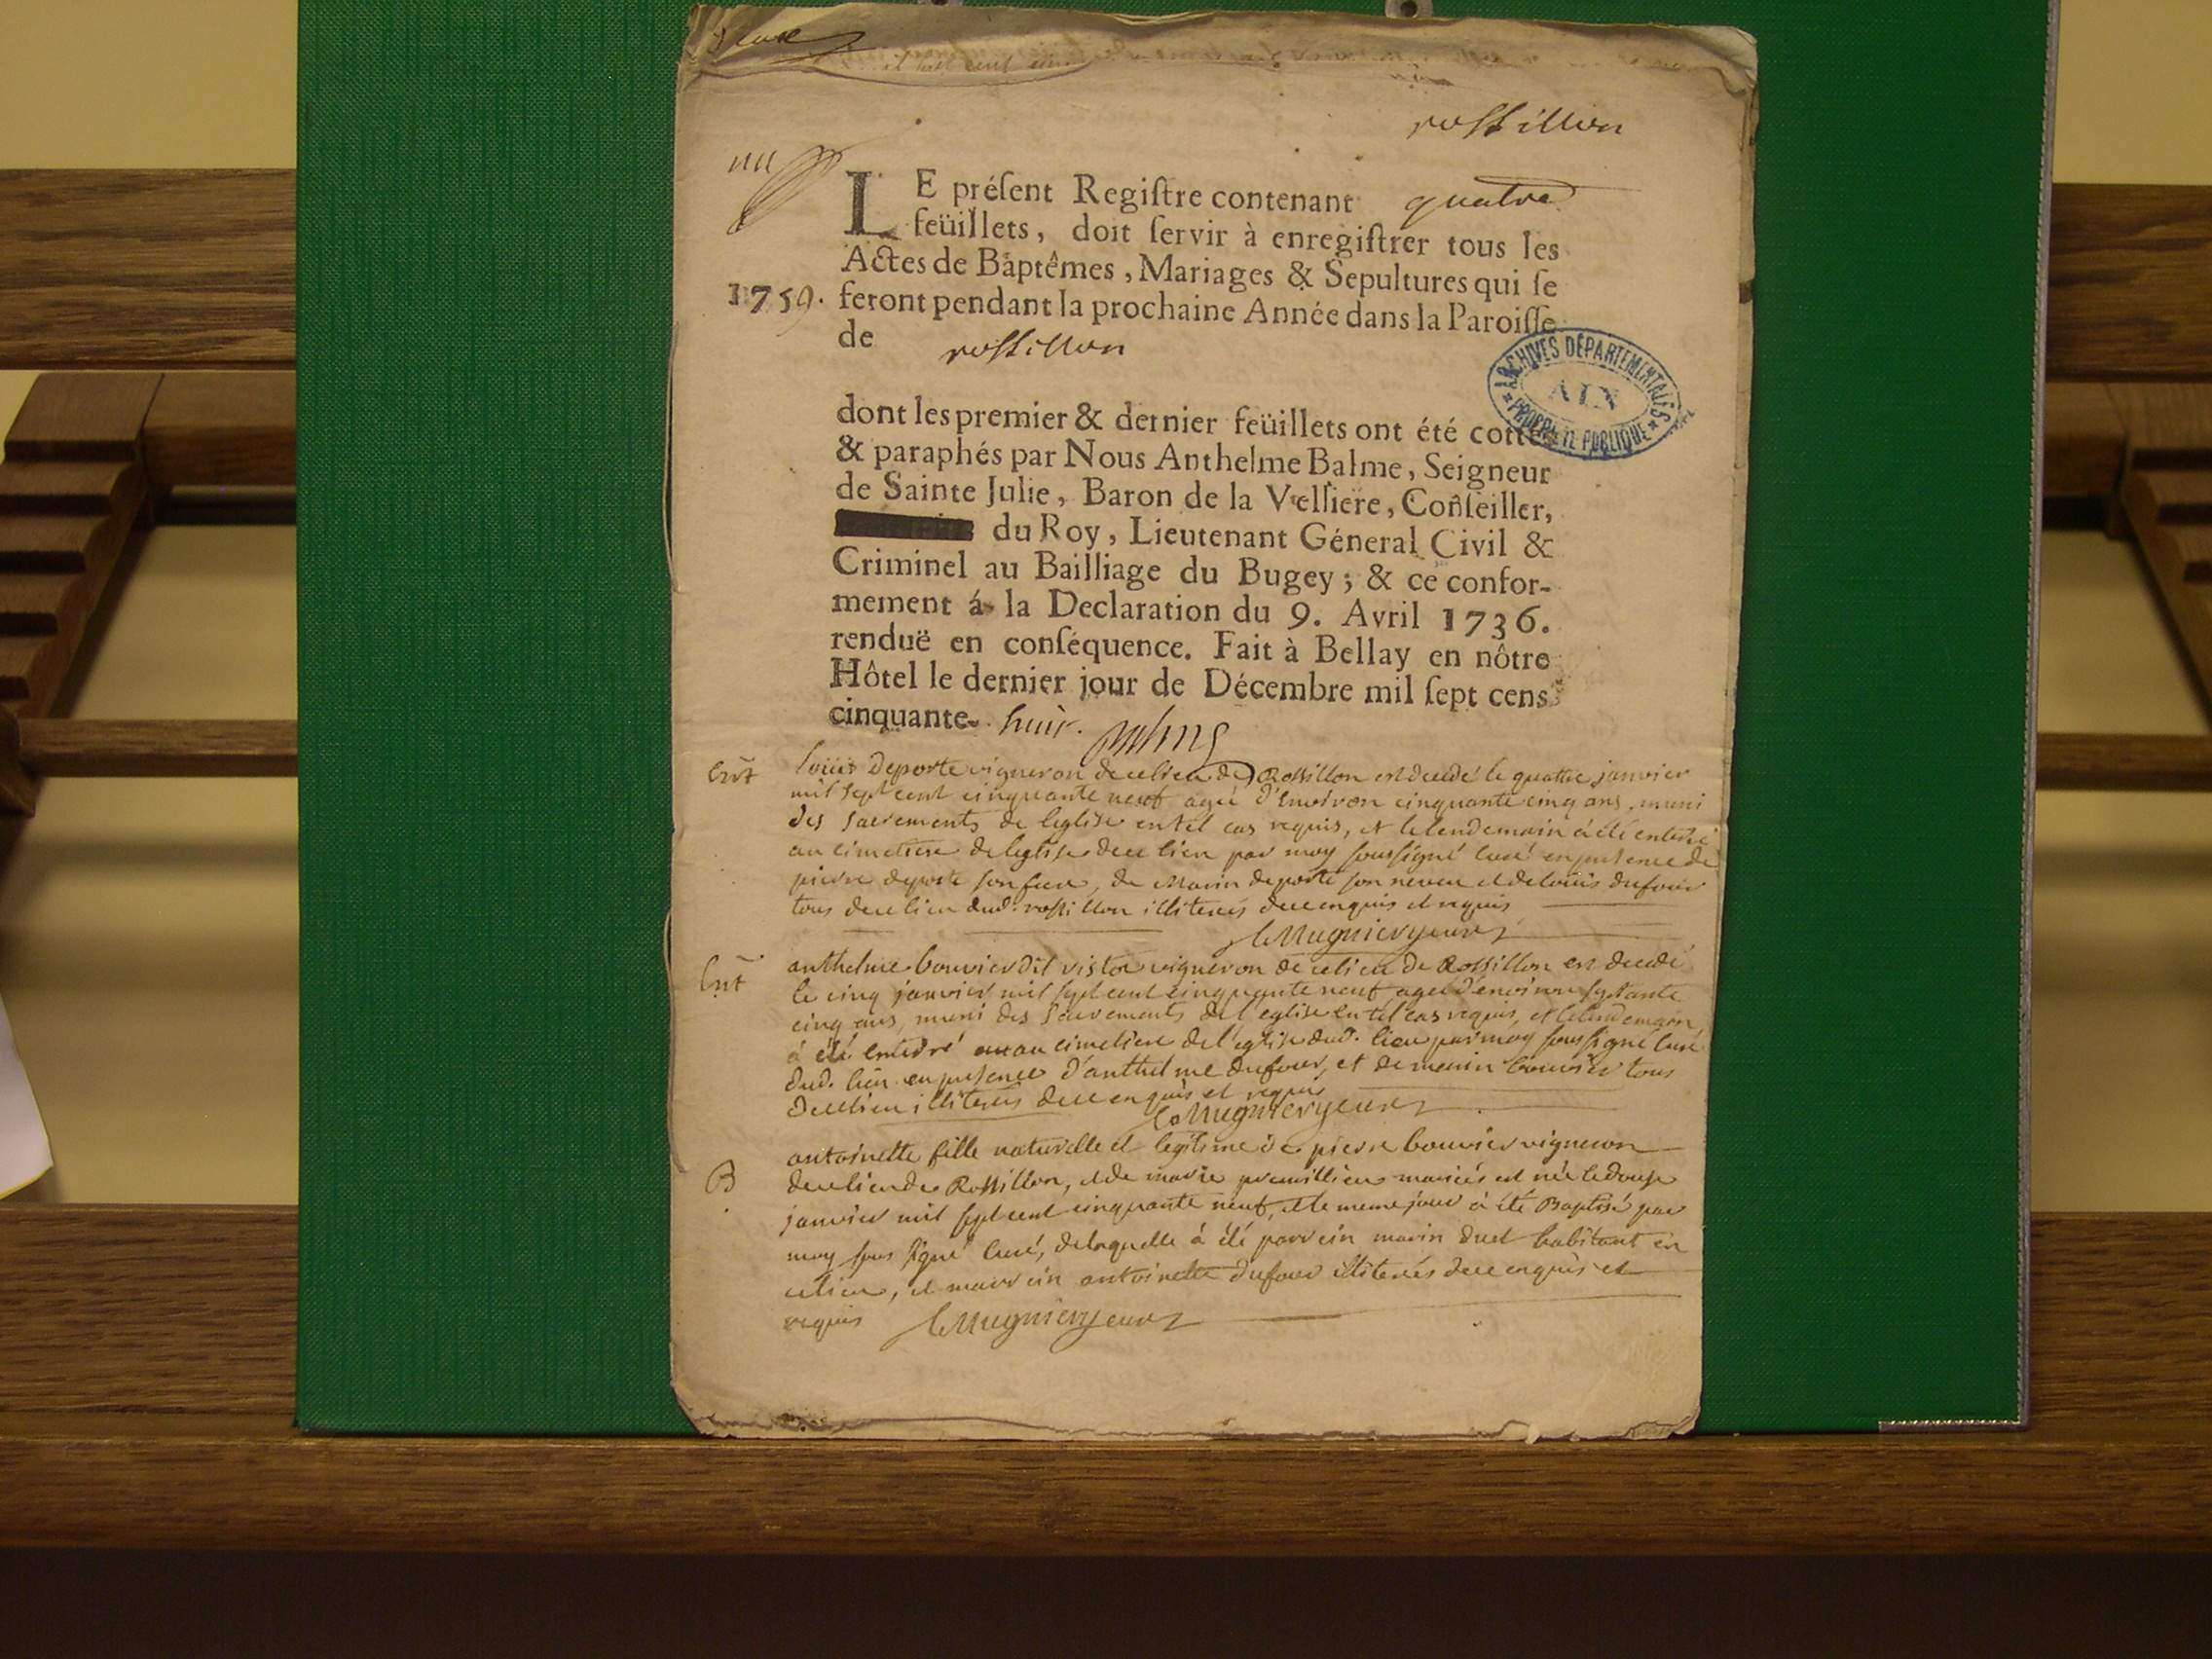 rossillon
LE préſent Regiſtre contenant quatre
feüillets, doit ſervir à enregiſtrer tous les
Actes de Baptêmes, Mariages & Sepultures qui ſe
1759. feront pendant la prochaine Année dans la Paroiſſe
de rossillon
ARCHIVES DÉPARTEMENTALES
AIN
PROPRIÉTÉ PUBLIQUE
dont les premier & dernier feüillets ont été cottés
& paraphés par Nous Anthelme Balme, Seigneur
de Sainte Julie, Baron de la Velliere, Conſeiller,
du Roy, Lieutenant Géneral Civil &
Criminel au Bailliage du Bugey; & ce confor-
mement á la Declaration du 9. Avril 1736.
renduë en conſéquence. Fait à Bellay en nôtre
Hôtel le dernier jour de Décembre mil ſept cens
cinquante-huit.
louis Deporte vigneron de ce lieu de Rossillon est decedé le quattre janvier
mil sept cent cinquante neuf agé d'environ cinquante cinq ans, muni
des sacrements de leglise en tel cas requis, et le lendemain à été enterré
au cimetiere de leglise de ce lieu par moy soussigné curé en presence de
pierre deporte son frere, de Marin deporte son neveu et de louis dufour
tous de ce lieu dud. rossillon illiterés de ce enquis et requis
anthelme bouvier dit vistor vigneron de ce lieu de Rossillon est decedé
le cinq janvier mil sept cent cinquante neuf agé d'environ septante
cinq ans, muni des sacrements de l'eglise en tel cas requis, et le lendemain
à été enterré au cimetiere de l'eglise dud. lieu par moy soussigné curé
dud. lieu en presence d'anthelme dufour, et de marin bouvier tous
de ce lieu illiterés de ce enquis et requis
antoinette fille naturelle et legitime de pierre bouvier vigneron
B de ce lieu de Rossillon, et de marie premillieu mariés est née le douze
janvier mil sept cent cinquante neuf, et le meme jour à été Baptisé par
moy sous signé curé, de laquelle à été parrein marin duet habitant en
ce lieu, et marrein antoinette dufour illiterés de ce enquis et
requis